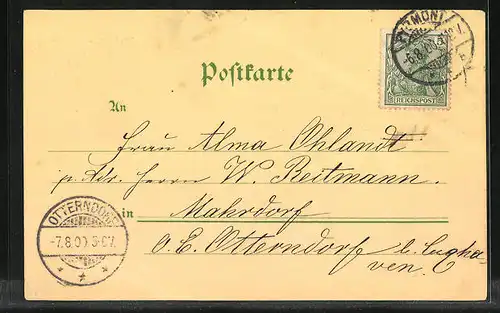 PYRMONT
-6.8.00
REICHSPOST
Postkarte
An
Frau Alma Ohlandt
p. Adr. Herrn W. Reitmann
in Mahrdorf
o. E. Otterndorf b. Cuxha-
ven.
OTTERNDORF
-7.8.00 5-6V.